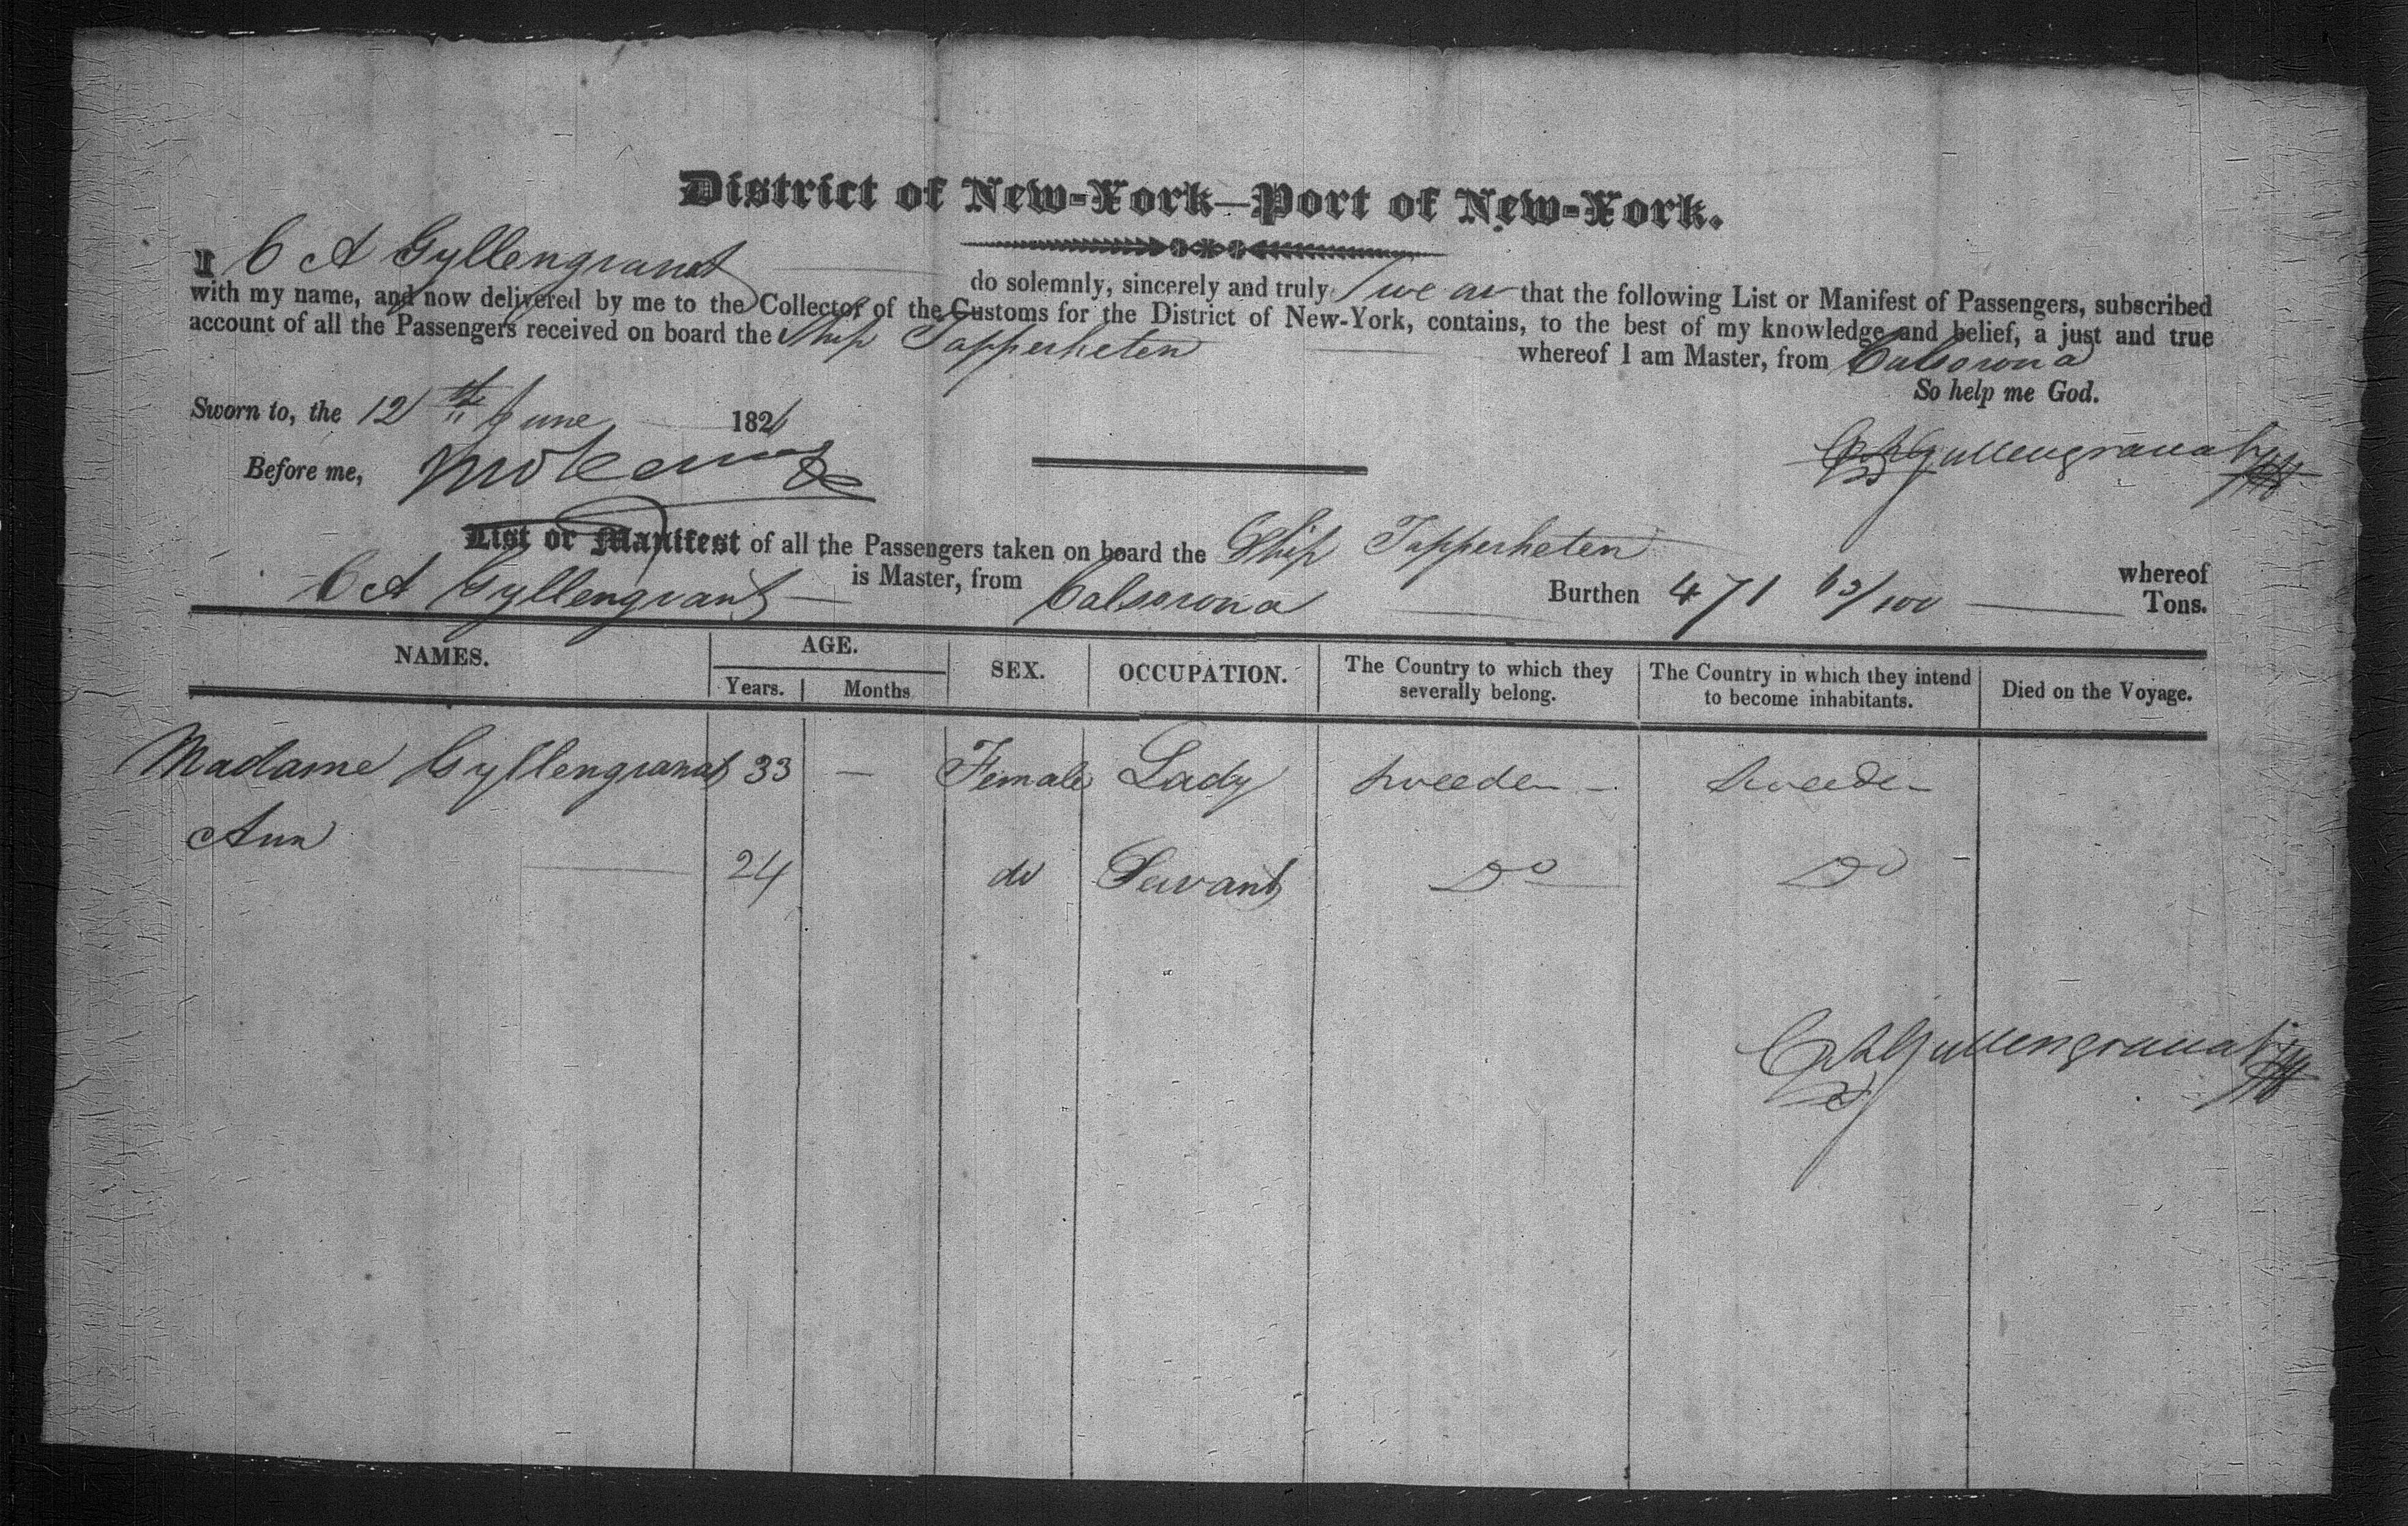 District of New-York—Port of New-York.
I C A Gyllengranat do solemnly, sincerely and truly swear that the following List or Manifest of Passengers, subscribed
with my name, and now delivered by me to the Collector of the Customs for the District of New-York, contains, to the best of my knowledge and belief, a just and true
account of all the Passengers received on board the Ship Tapperheten whereof I am Master, from Calsorona
So help me God.
Sworn to, the 12th June 1826
CA Gyllengranat
Before me,
List or Manifest of all the Passengers taken on board the Ship Tapperheten whereof
C A Gyllengranat is Master, from Calsorona Burthen 471 63/100 Tons.
NAMES. AGE. SEX. OCCUPATION. The Country to which they severally belong. The Country in which they intend to become inhabitants. Died on the Voyage.
Years. Months
Madame Gyllengranat 33 — Female Lady Sweeden Sweeden
Ann 24 do Servant Do Do
CA Gyllengranat